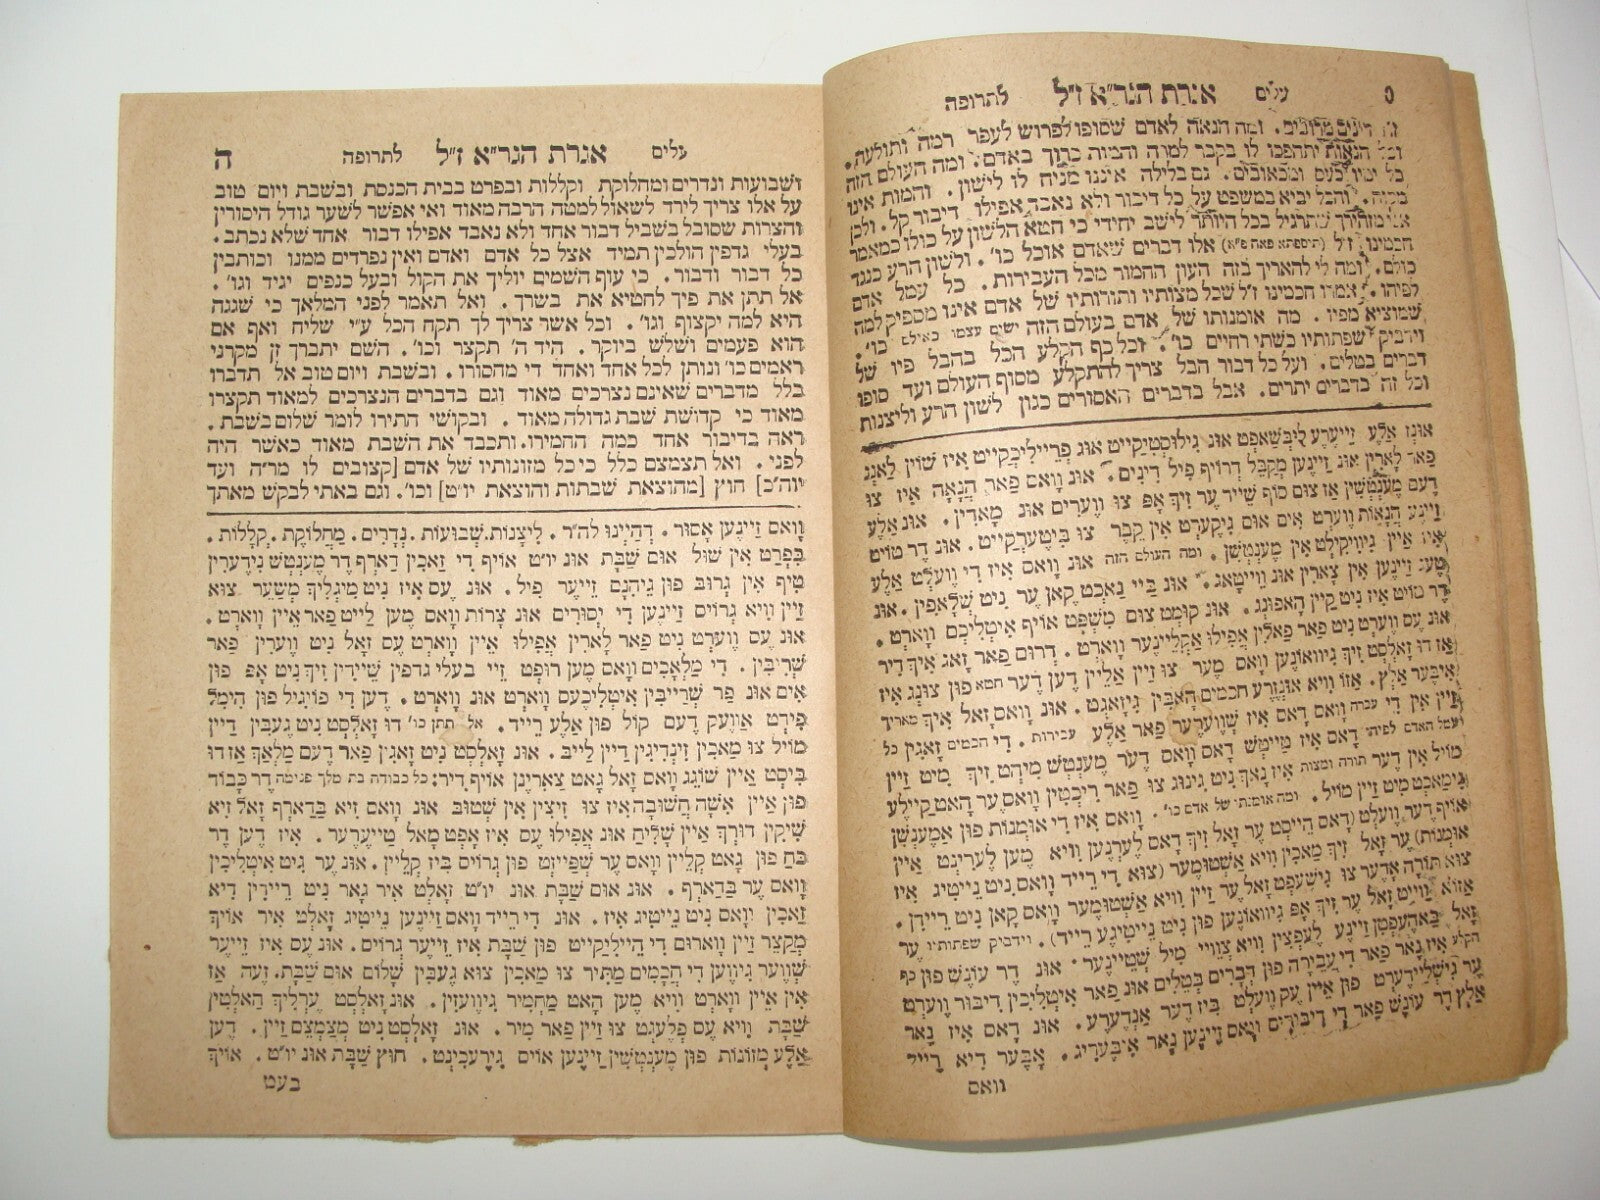 עלים אגרת הגר״א ז״ל לתרופה
דינים מרובים. ומה הנאה לאדם שסופו לפרוש לעפר רמה ותולעת.
וכל הנאות יתהפכו לו בקבר למרה והמות כרוך באדם. ומה העולם הזה
כל ימיו כעס ומכאובים. גם בלילה איננו מניח לו לישון. והמות אינו
והכל יביא במשפט על כל דיבור ולא נאבד אפילו דיבור קל. ולכן
אני מזהירך שתרגיל בכל היותר לישב יחידי כי חטא הלשון על כולו כמאמר
חכמינו ז״ל (תוספתא פאה פ״א) אלו דברים שאדם אוכל כו׳. ולשון הרע כנגד
כולם. ומה לי להאריך בזה העון החמור מכל העבירות. כל עמל אדם
לפיהו. אמרו חכמינו ז״ל שכל מצותיו ותורותיו של אדם אינו מספיק למה
שמוציא מפיו. מה אומנותו של אדם בעולם הזה ישים עצמו כאילם כו׳.
וידביק שפתותיו כשתי רחיים כו׳. וכל כף הקלע הכל בהבל פיו של
דברים בטלים. ועל כל דבור הבל צריך להתקלע מסוף העולם ועד סופו
וכל זה בדברים יתרים. אבל בדברים האסורים כגון לשון הרע וליצנות
אונז אלע זייערע ליבשאפט אונ גילוסטיקייט אונ פרייליכקייט איז שוין לאנג
פאר לארין אונ זיינען מקבל דרויף פיל דינים. אונ וואס פאר הנאה איז צו
דעם מענטשין אז צום סוף שייד ער זיך אפ צו ווערים אונ מאדין. אונ אלע
זיינע הנאות ווערט אים אום גיקערט אין קבר צו ביטערקייט. אונ דר טויט
איז איין גיוויקילט אין מענטשן. ומה העולם הזה אונ וואס איז די וועלט אלע
טעג זיינען אין צארין אונ ווייטאג. אונ ביי נאכט קאן ער ניט שלאפין. אונ
דר טויט איז ניט קיין האפונג. אונ קומט צום משפט אויף איטליכס ווארט.
אונ עס ווערט ניט פאר פאלין אפילו אקליינער ווארט. דרום פאר זאג איך דיר
אז דו זאלסט זיך גיוואונען וואס מער צו זיין אליין דען דער חטא פון צונג איז
איבער אלץ. אזו וויא אונזערע חכמים האבין גיזאגט. אונ וואס זאל איך מאריך
זיין אין די עברה וואס דאס איז שווערער פאר אלע עבירות. די חכמים זאגין כל
עמל האדם לפיהו דאס איז טייטש דאס וואס דער מענטש מיהט זיך מיט זיין
מויל אין דער תורה ומצות איז נאך ניט גינוג צו פאר ריכטין וואס ער האט קיילע
גימאכט מיט זיין מויל. ומה אומנתו של אדם כו׳. וואס איז די אומנות פון אמענשן
אויף דער וועלט (דאס הייסט ער זאל זיך דאס לערנען וויא מען לערינט איין
אומנות) ער זאל זיך מאכין וויא אשטומער (צוא די רייד וואס ניט נייטיג איז
צוא תורה אדער צו גישעפט זאל ער זיין וויא אשטומער וואס קאן ניט ריידן.
אזוא ווייט זאל ער זיך אפ גיוואונען פון ניט נייטיגע רייד). וידביק שפתותיו ער
זאל באהעפטן זיינע לעפצין וויא צוויי מיל שטיינער. אונ דר עונש פון כף
הקלע איז נאר פאר די עבירה פון דברים בטלים אונ פאר איטליכין דיבור ווערט
ער גישליידערט פון איין עק וועלט ביז דער אנדערע. אונ דאס איז נאר
אלץ דר עונש פאר די דיבורים וואס זיינען נאר איבעריג. אבער דיא רייד
וואס
ה עלים אגרת הגר״א ז״ל לתרופה
ושבועות ונדרים ומחלוקת וקללות ובפרט בבית הכנסת ובשבת ויום טוב
על אלו צריך לירד לשאול למטה הרבה מאוד ואי אפשר לשער גודל היסורין
והצרות שסובל בשביל דבור אחד ולא נאבד אפילו דבור אחד שלא נכתב.
בעלי גדפין הולכין תמיד אצל כל אדם ואדם ואין נפרדים ממנו וכותבין
כל דבור ודבור. כי עוף השמים יוליך את הקול ובעל כנפים יגיד וגו׳.
אל תתן את פיך לחטיא את בשרך. ואל תאמר לפני המלאך כי שגגה
היא למה יקצוף וגו׳. וכל אשר צריך לך תקח הכל ע״י שליח ואף אם
הוא פעמים ושלש ביוקר. היד ה׳ תקצר וכו׳. השם יתברך זן מקרני
ראמים כו׳ ונותן לכל אחד ואחד די מחסורו. ובשבת ויום טוב אל תדברו
בלל מדברים שאינם נצרכים מאוד וגם בדברים הנצרכים למאוד תקצרו
מאוד כי קדושת שבת גדולה מאוד. ובקושי התירו לומר שלום בשבת.
ראה בדיבור אחד כמה החמירו. ותכבד את השבת מאוד כאשר היה
לפני. ואל תצמצם כלל כי כל מזונותיו של אדם [קצובים לו מר״ה ועד
יוה״כ] חוץ [מהוצאת שבתות והוצאת יו״ט] וכו׳. וגם באתי לבקש מאתך
וואס זיינען אסור. דהיינו לה״ר. ליצנות. שבועות. נדרים. מחלוקת. קללות.
בפרט אין שול אום שבת אונ יו״ט אויף די זאכין דארף דר מענטש נידערין
טיף אין גרוב פון גיהנם זייער פיל. אונ עס איז ניט מיגליך משער צוא
זיין וויא גרויס זיינען די יסורים אונ צרות וואס מען לייט פאר איין ווארט.
אונ עס ווערט ניט פאר לארין אפילו איין ווארט עס זאל ניט ווערין פאר
שריבין. די מלאכים וואס מען רופט זיי בעלי גדפין שיידין זיך ניט אפ פון
אים אונ פר שרייבין איטליכעס ווארט אונ ווארט. דען די פויגיל פון הימל
פידט אוועק דעם קול פון אלע רייד. אל תתן כו׳ דו זאלסט ניט געבין דיין
מויל צו מאכין זינדיגין דיין לייב. אונ זאלסט ניט זאגין פאר דעם מלאך אז דו
ביסט איין שוגג וואס זאל גאט צארינן אויף דיר: כל כבודה בת מלך פנימה דר כבוד
פון איין אשה חשובה איז צו זיצין אין שטוב אונ וואס זיא בדארף זאל זיא
שיקין דורך איין שליח אונ אפילו עס איז אפט מאל טייערער. איז דען דר
כח פון גאט קליין וואס ער שפייזט פון גרויס ביז קליין. אונ ער גיט איטליכין
וואס ער בדארף. אונ אום שבת אונ יו״ט זאלט איר גאר ניט ריידין דיא
זאכין וואס ניט נייטיג איז. אונ די רייד וואס זיינען נייטיג זאלט איר אויך
מקצר זיין ווארום די הייליקייט פון שבת איז זייער גרויס. אונ עס איז זייער
שווער גיווען די חכמים מתיר צו מאכין צוא געבין שלום אום שבת. זעה אז
אין איין ווארט וויא מען האט מחמיר גיוועזין. אונ זאלסט ערליך האלטין
שבת וויא עס פלעגט צו זיין פאר מיר. אונ זאלסט ניט מצמצם זיין. דען
אלע מזונות פון מענטשין זיינען אויס גירעכינט. חוץ שבת אונ יו״ט. אויך
בעט